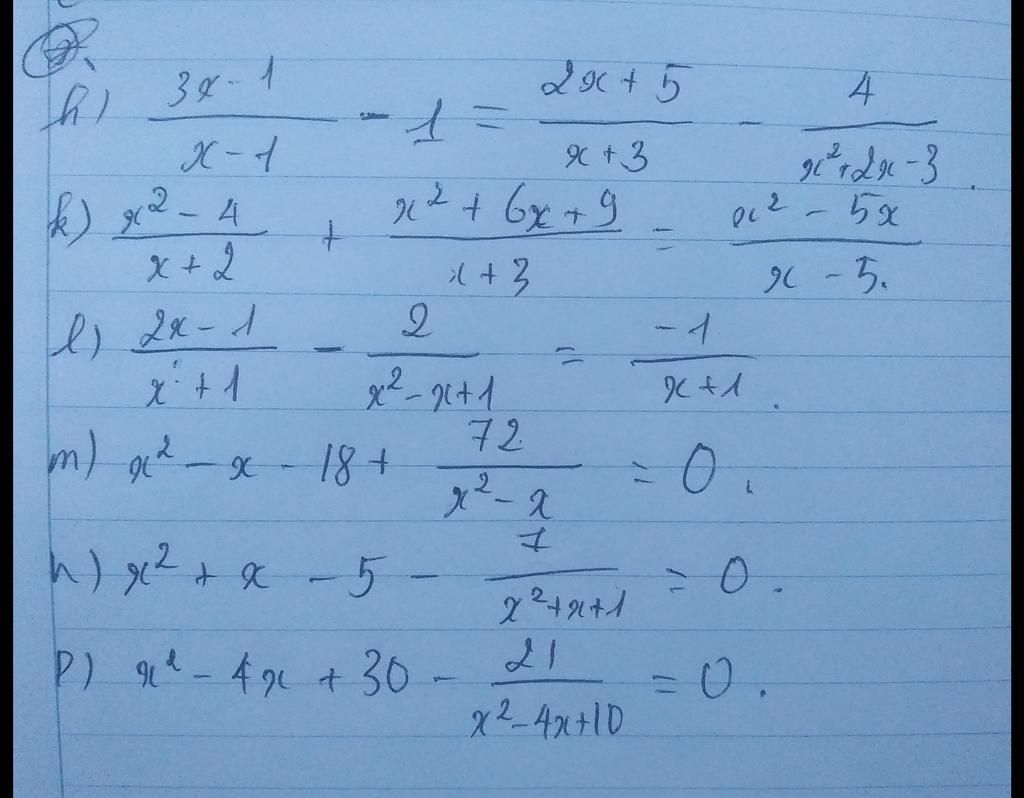 h) (3x-1)/(x-1) - 1 = (2x+5)/(x+3) - 4/(x²+2x-3).
k) (x²-4)/(x+2) + (x²+6x+9)/(x+3) = (x²-5x)/(x-5).
l) (2x-1)/(x+1) - 2/(x²-x+1) = -1/(x+1).
m) x²-x-18+ 72/(x²-x) = 0.
n) x²+x-5- 7/(x²+x+1) = 0.
p) x²-4x+30- 21/(x²-4x+10) = 0.